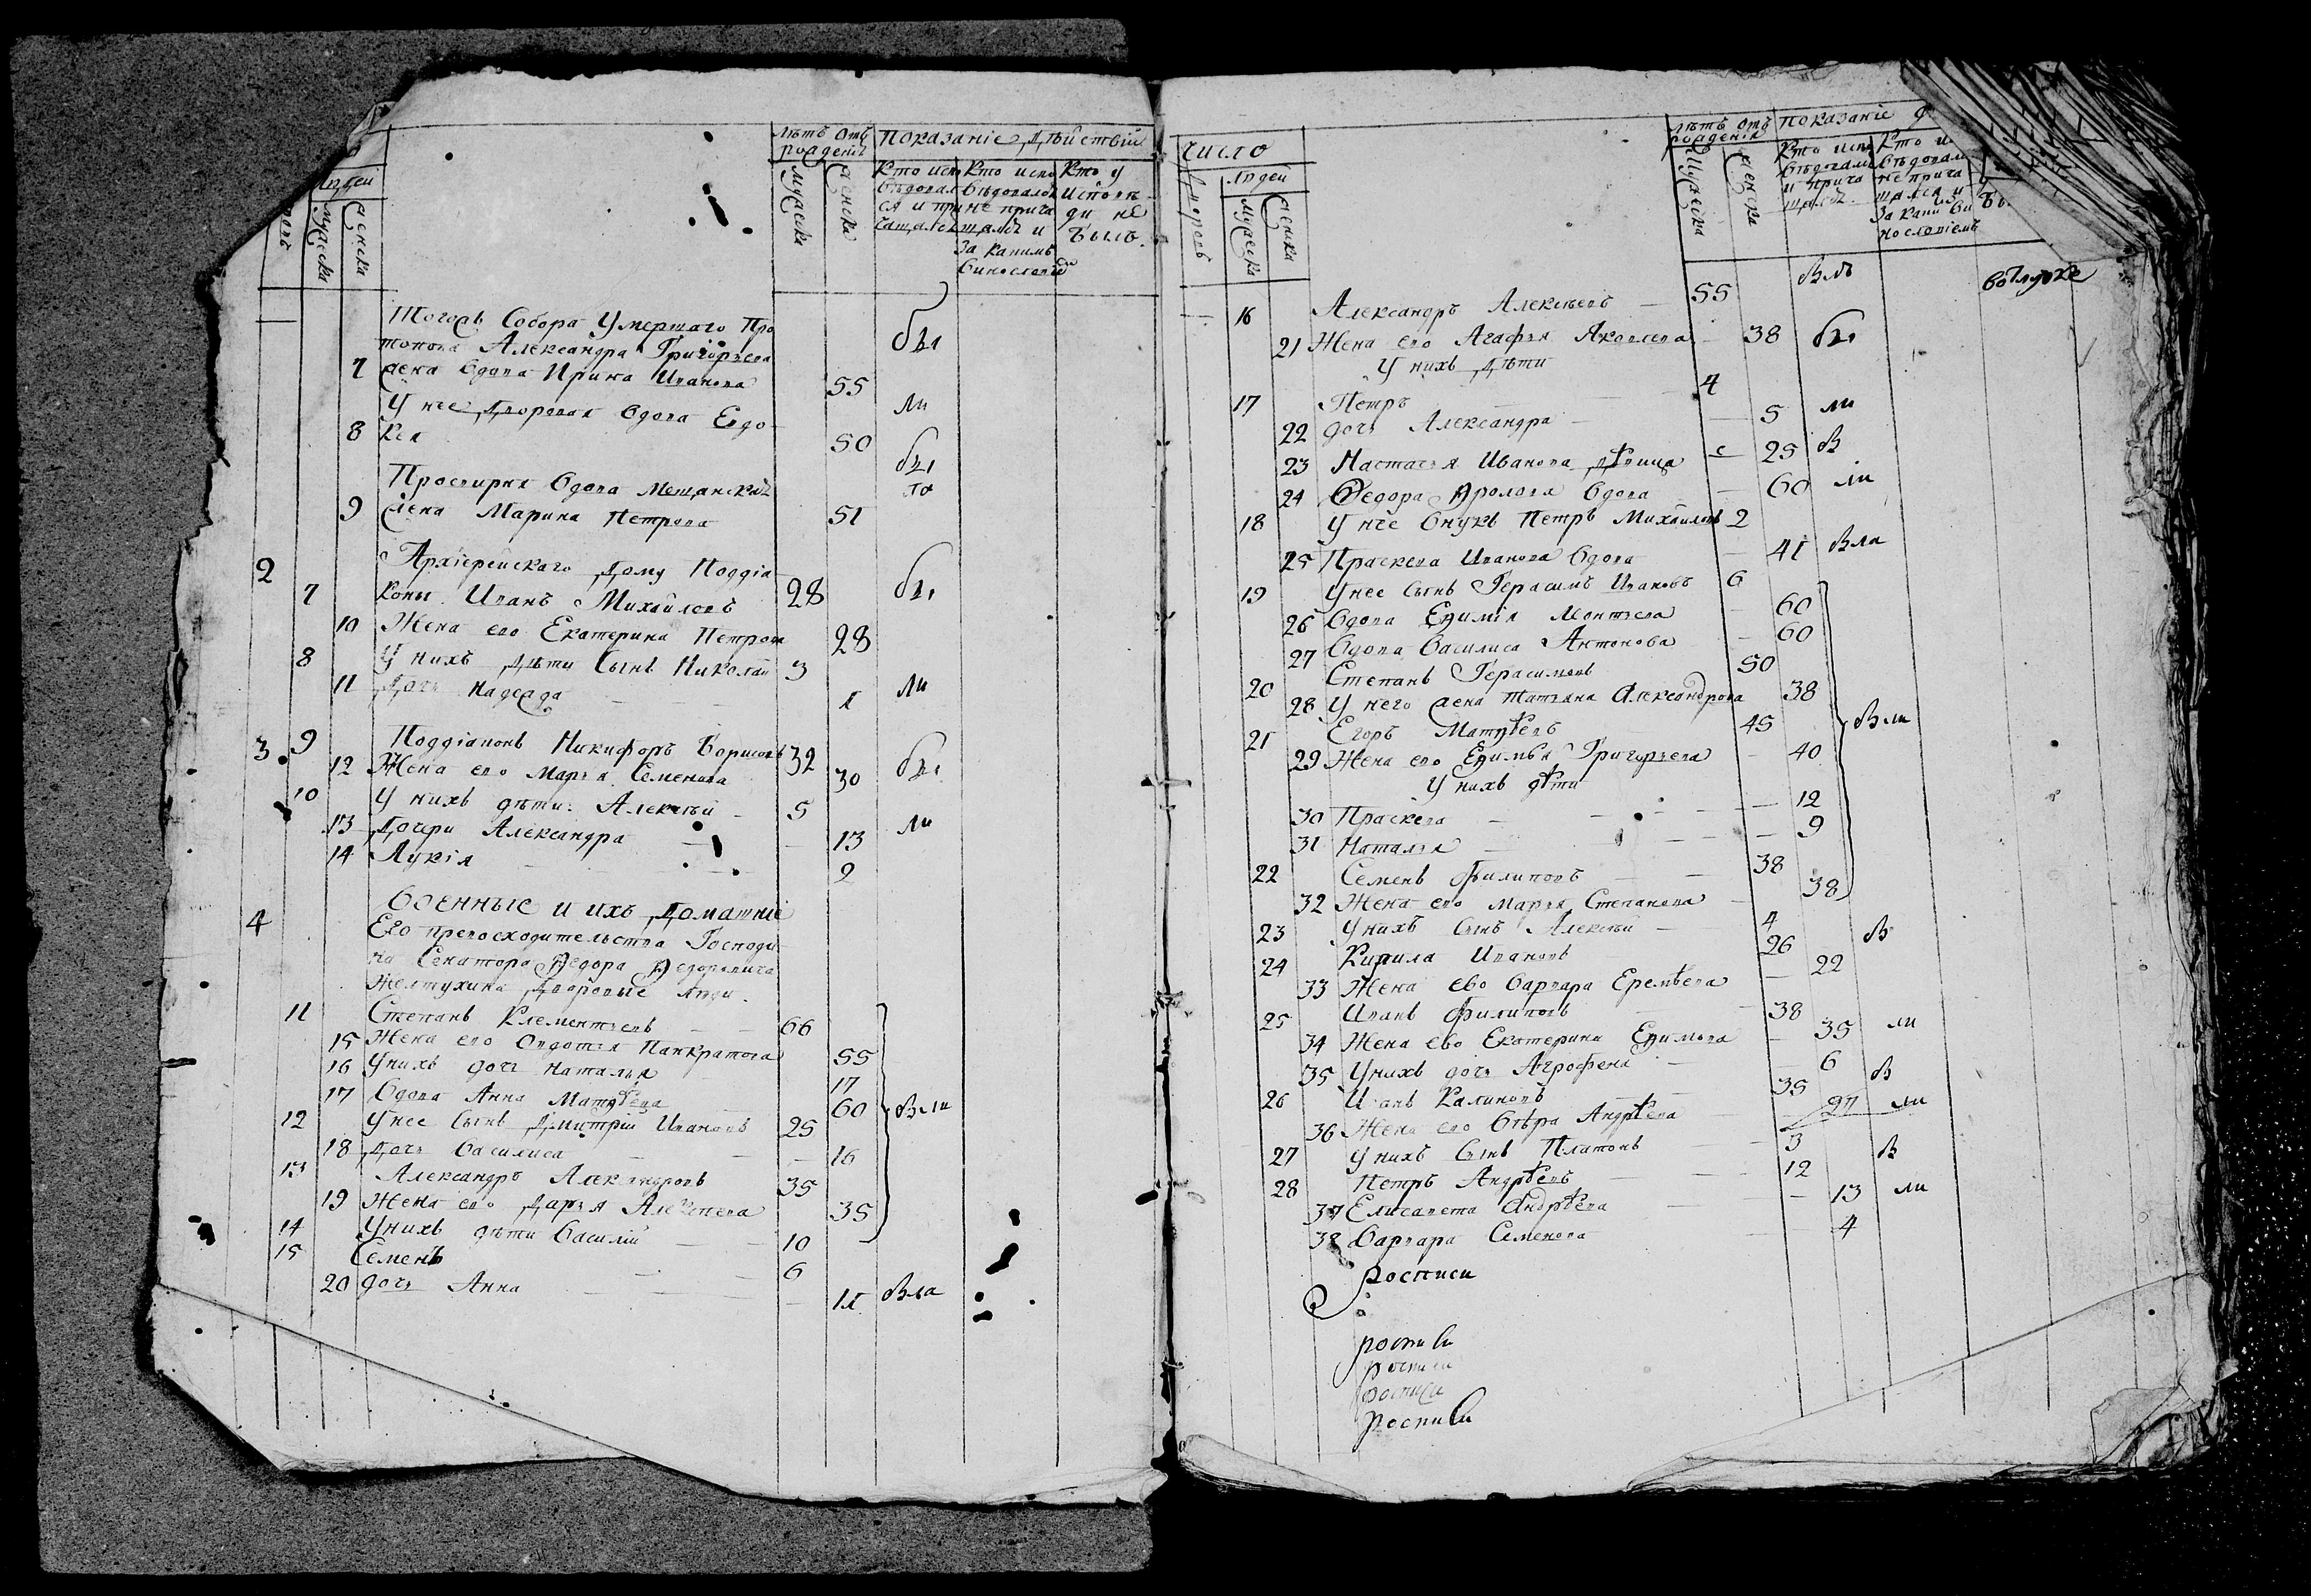 лѣтъ отъ рожденiя
Показаніе дѣйствій
людей
мужеска
женска
мужеска
женска
Кто исповѣдовался и причащался
Кто исповѣдовался не причащался и за какимъ винословіемъ
Кто у исповѣди не былъ.
Тогожъ Собора Умершаго Про
топопа Александра Григорьева бы
7 жена вдова Ирина Иванова 55
У нее дворовая вдова Евдо ли
8 кея 50
бы
Просвирня вдова Мещанская
9 жена Марина Петрова 51
2 Архіерейскаго дому Поддіа
7 коны Иванъ Михайловъ 28 бы
10 Жена его Екатерина Петрова 28
8 У нихъ дѣти Сынъ Николай 3
11 Дочь Надежда 1 ли
3. 9 Поддіаконъ Никифоръ Борисовъ 32
12 Жена его Марья Семенова 30 бы
10 У нихъ дѣти: Алексѣй 5
13 Дочери Александра 13 ли
14 Лукія 2
4 Военные и ихъ домашніе
Его превосходительства Господи
на Сенатора Ѳедора Ѳедоровича
Желтухина дворовые люди.
11 Степанъ Клементьевъ 66
15 Жена его Овдотья Панкратова 55
16 У нихъ дочь Наталья 17
17 Вдова Анна Матвѣева 60 были
12 У нее Сынъ Дмитрій Ивановъ 25
18 Дочь Василиса 16
13 Александръ Александровъ 35
19 Жена его Дарья Алексѣева 35
14 У нихъ дѣти Василій 10
15 Семенъ 6
20 дочь Анна 11 была
Число
людей
дворовъ
мужеска
женска
лѣтъ отъ рожденія
Показаніе
мужеска
женска
16 Александръ Алексѣевъ 55
21 Жена его Агафья Яковлева 38 бы
У нихъ дѣти
17 Петръ 4
22 дочь Александра 5 ли
23 Настасья Иванова дѣвица 25
24 Ѳедора Фролова вдова 60
18 У нее внукъ Петръ Михайловъ 2
25 Праскева Иванова вдова 41 была
19 У нее Сынъ Герасимъ Ивановъ 6
26 Вдова Ефимія Леонтьева 60
27 Вдова Василиса Антонова 60
20 Степанъ Герасимовъ 50
28 У него жена Татьяна Александрова 38
21 Егоръ Матвѣевъ 45 были
29 Жена его Ефимья Григорьева 40
У нихъ дѣти
30 Праскева 12
31 Наталья 9
22 Семенъ Филиповъ 38
32 Жена его Марья Степанова 38
23 У нихъ Сынъ Алексѣй 4
24 Кирила Ивановъ 26
33 Жена ево Варвара Еремѣева 22
25 Иванъ Филиповъ 38
34 Жена ево Екатерина Ефимова 35 ли
35 У нихъ дочь Агрофена 6
26 Иванъ Калиновъ 35
36 Жена его Вѣра Андрѣева 27 ли
27 У нихъ Сынъ Платонъ 3
28 Петръ Андрѣевъ 12
37 Елисавета Андрѣева 13 ли
38 Варвара Семенова 4
росписи
росписи
росписи
росписи
росписи